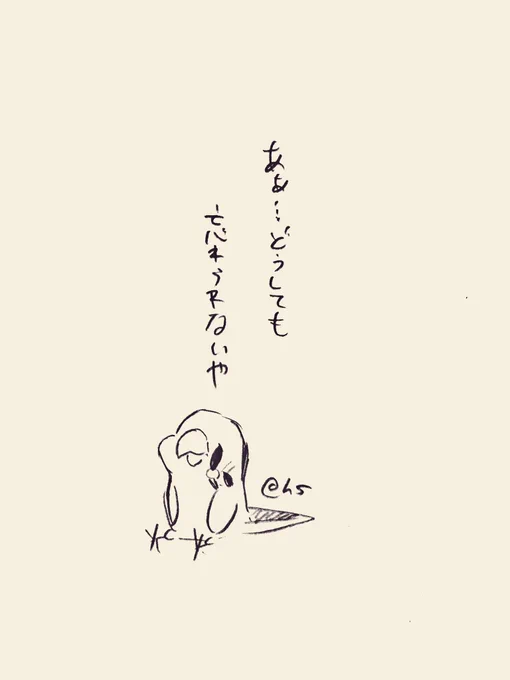 ああ…どうしても
忘れられないや
@h5